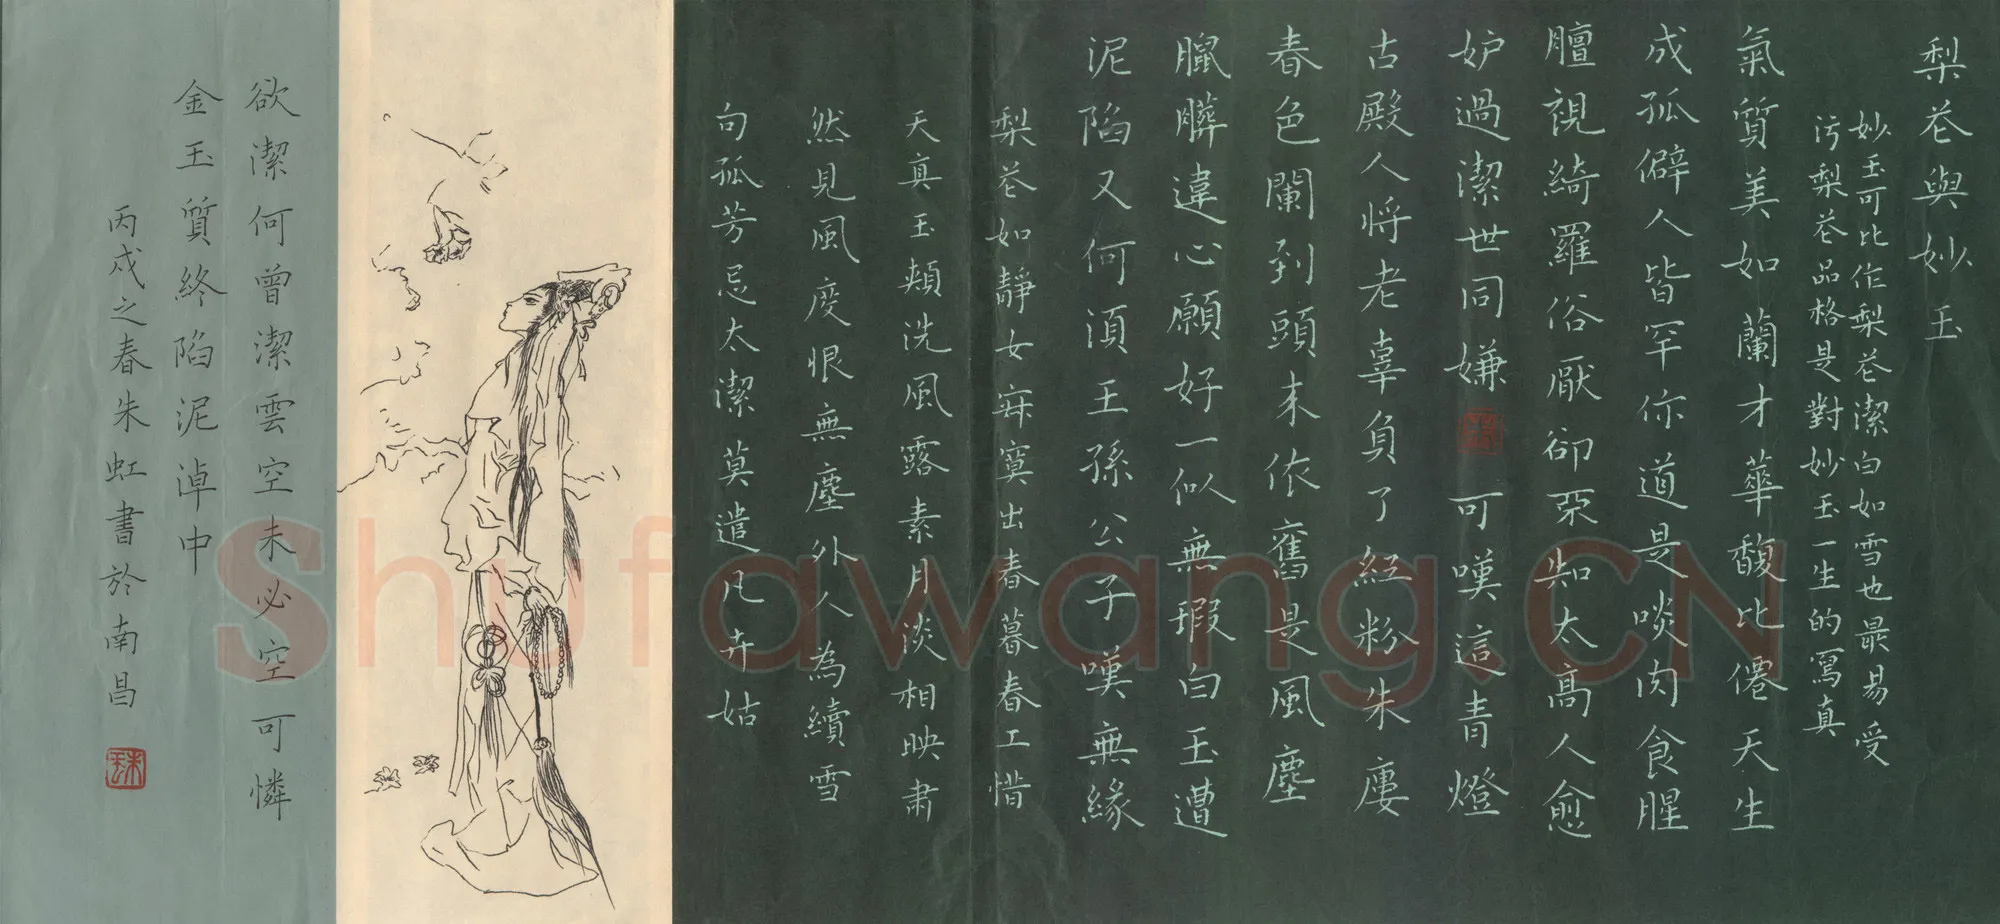 梨花與妙玉
妙玉可比作梨花潔白如雪也最易受
污梨花品格是對妙玉一生的寫真
氣質美如蘭才華馥比僊天生
成孤僻人皆罕你道是啖肉食腥
膻視綺羅俗厭卻不知太高人愈
妒過潔世同嫌 可嘆這青燈
古殿人將老辜負了紅粉朱樓
春色闌到頭來依舊是風塵
骯髒違心願好一似無瑕白玉遭
泥陷又何須王孫公子嘆無緣
梨花如靜女寂寞出春暮春工惜
天真玉頰洗風露素月淡相映肅
然見風度恨無塵外人為續雪
句孤芳忌太潔莫遣凡卉妬
欲潔何曾潔雲空未必空可憐
金玉質終陷泥淖中
丙戌之春朱虹書於南昌
Shufawang.CN